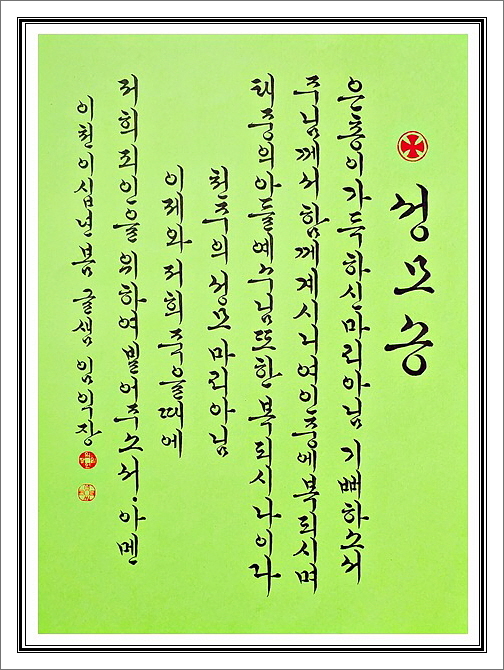 성모송
은총이가득하신마리아님 기뻐하소서
주님께서함께계시니여인중에복되시며
태중의아들예수님또한복되시나이다
천주의성모마리아님
이제와저희죽을때에
저희죄인을위하여빌어주소서·아멘
이천이십년봄 글샘 임익장